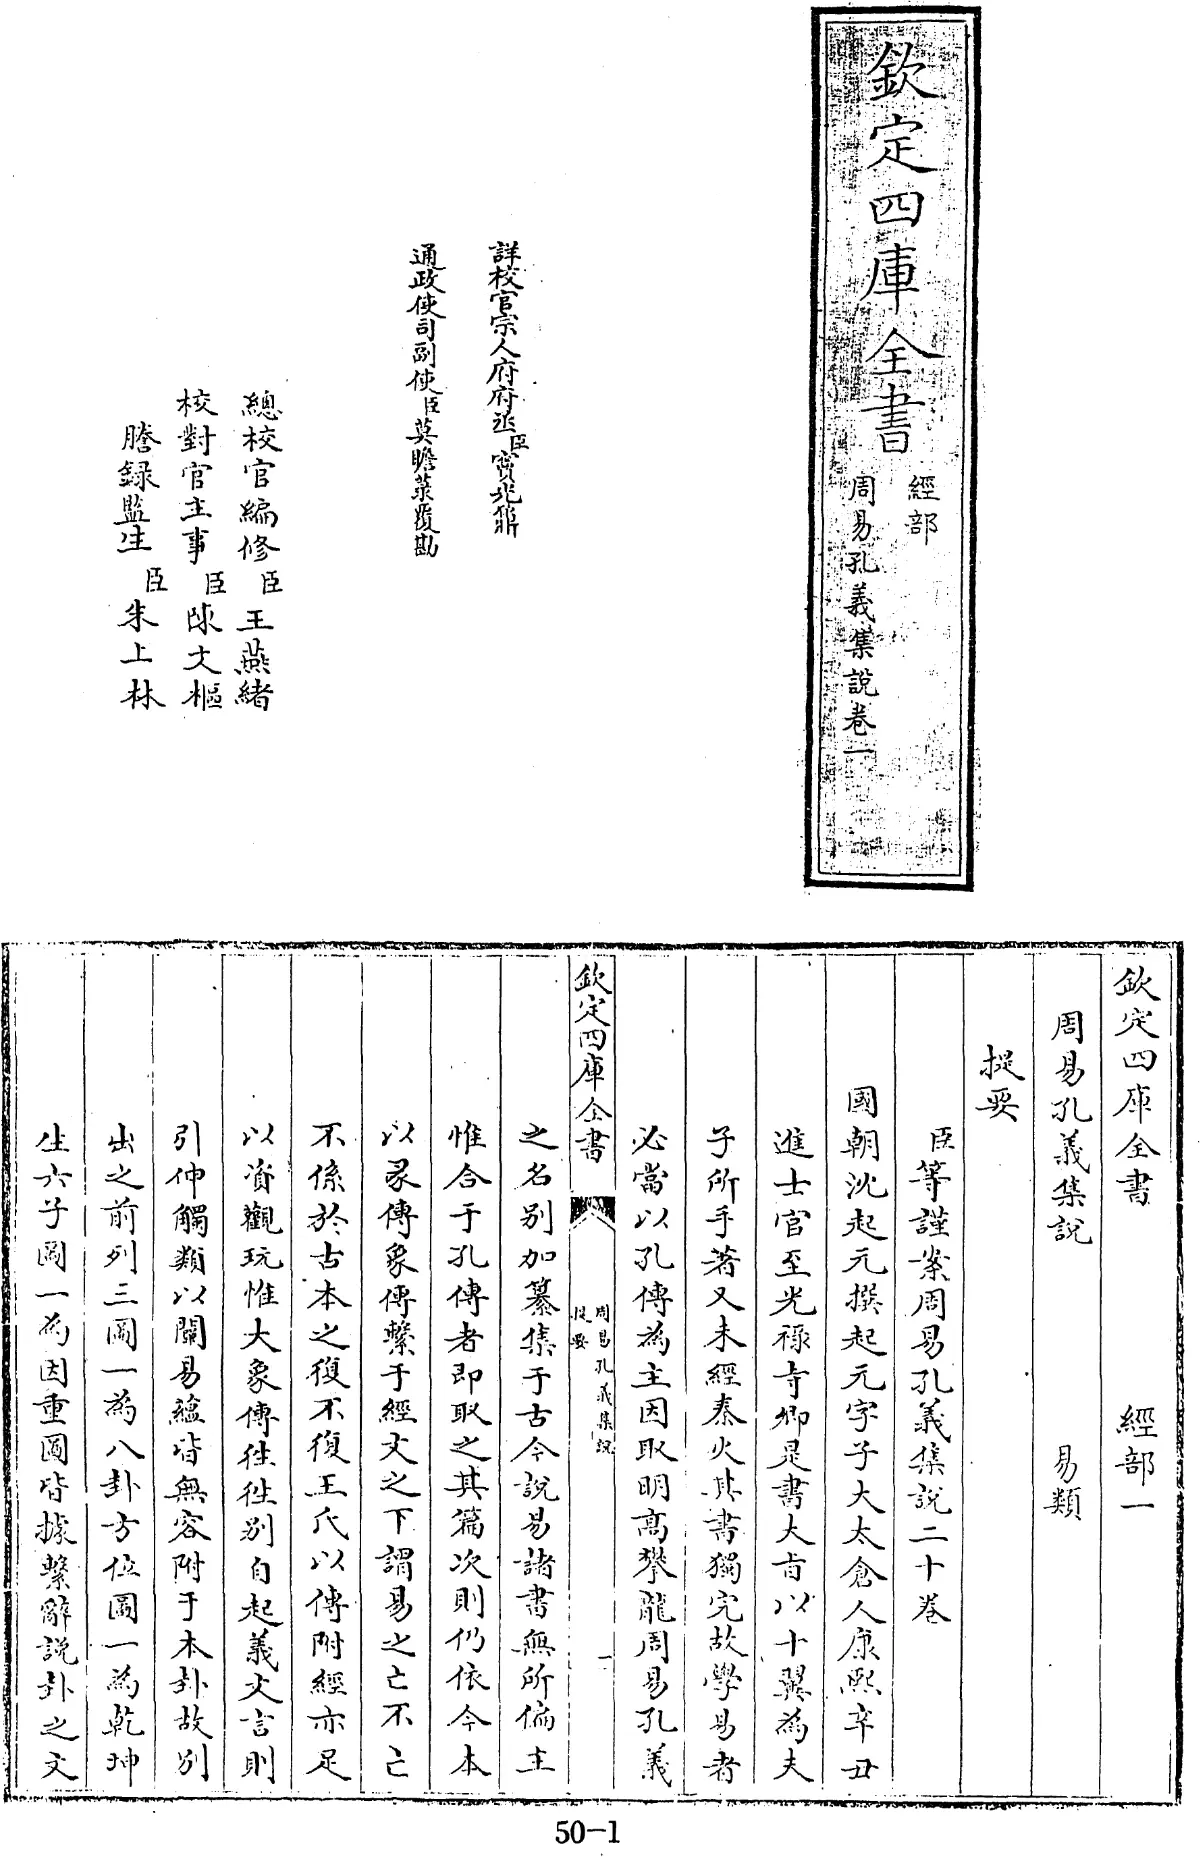 欽定四庫全書
經部
周易孔義集說卷一
詳校官宗人府府丞臣竇光鼐
通政使司副使臣莫瞻菉覆勘
總校官編修臣王燕緒
校對官主事臣陳文樞
謄録監生臣朱上林
欽定四庫全書 經部一
周易孔義集說 易類
提要
臣等謹案周易孔義集說二十卷
國朝沈起元撰起元字子大太倉人康熙辛丑
進士官至光祿寺卿是書大旨以十翼為夫
子所手著又未經秦火其書獨完故學易者
必當以孔傳為主因取明高攀龍周易孔義
欽定四庫全書
周易孔義集說
提要
一
之名別加纂集于古今說易諸書無所偏主
惟合于孔傳者即取之其篇次則仍依今本
以彖傳象傳繫于經文之下謂易之亡不亡
不係於古本之復不復王氏以傳附經亦足
以資觀玩惟大象傳往往別自起義文言則
引伸觸類以闡易蘊皆無容附于本卦故別
出之前列三圖一為八卦方位圖一為乾坤
生六子圖一為因重圖皆據繫辭說卦之文
50-1